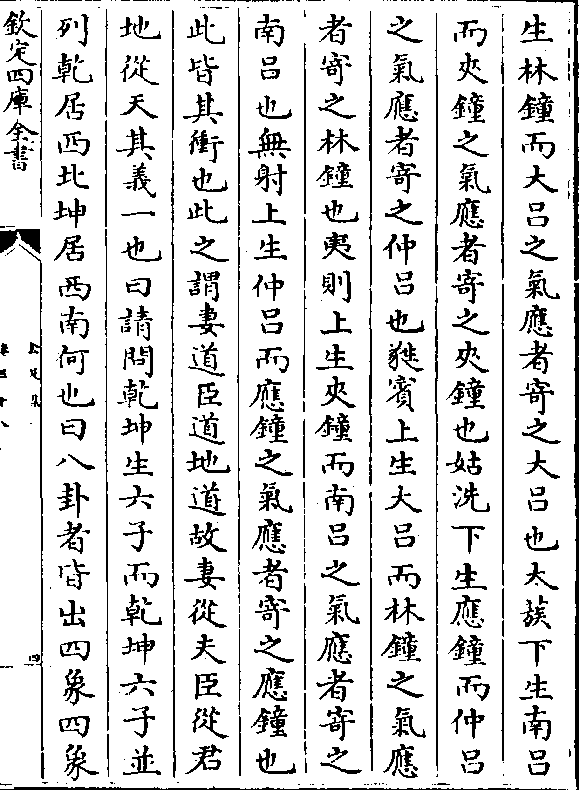 生林鐘而大吕之氣應者寄之大吕也太蔟下生南吕
而夾鐘之氣應者寄之夾鐘也姑洗下生應鐘而仲吕
之氣應者寄之仲吕也蕤賓上生大吕而林鐘之氣應
者寄之林鐘也夷則上生夾鐘而南吕之氣應者寄之
南吕也無射上生仲吕而應鐘之氣應者寄之應鐘也
此皆其衝也此之謂妻道臣道地道故妻從夫臣從君
地從天其義一也曰請問乾坤生六子而乾坤六子並
列乾居西北坤居西南何也曰八卦者皆出四象四象
欽定四庫全書
四